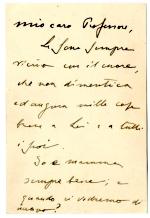 mio caro Professore,
Le sono sempre
vicino con il cuore,
che non dimentica
ed auguro mille cose
belle a Lei e a tutti
i suoi.
Io e mamma
sempre bene; e
quando ci vedremo di
nuovo?